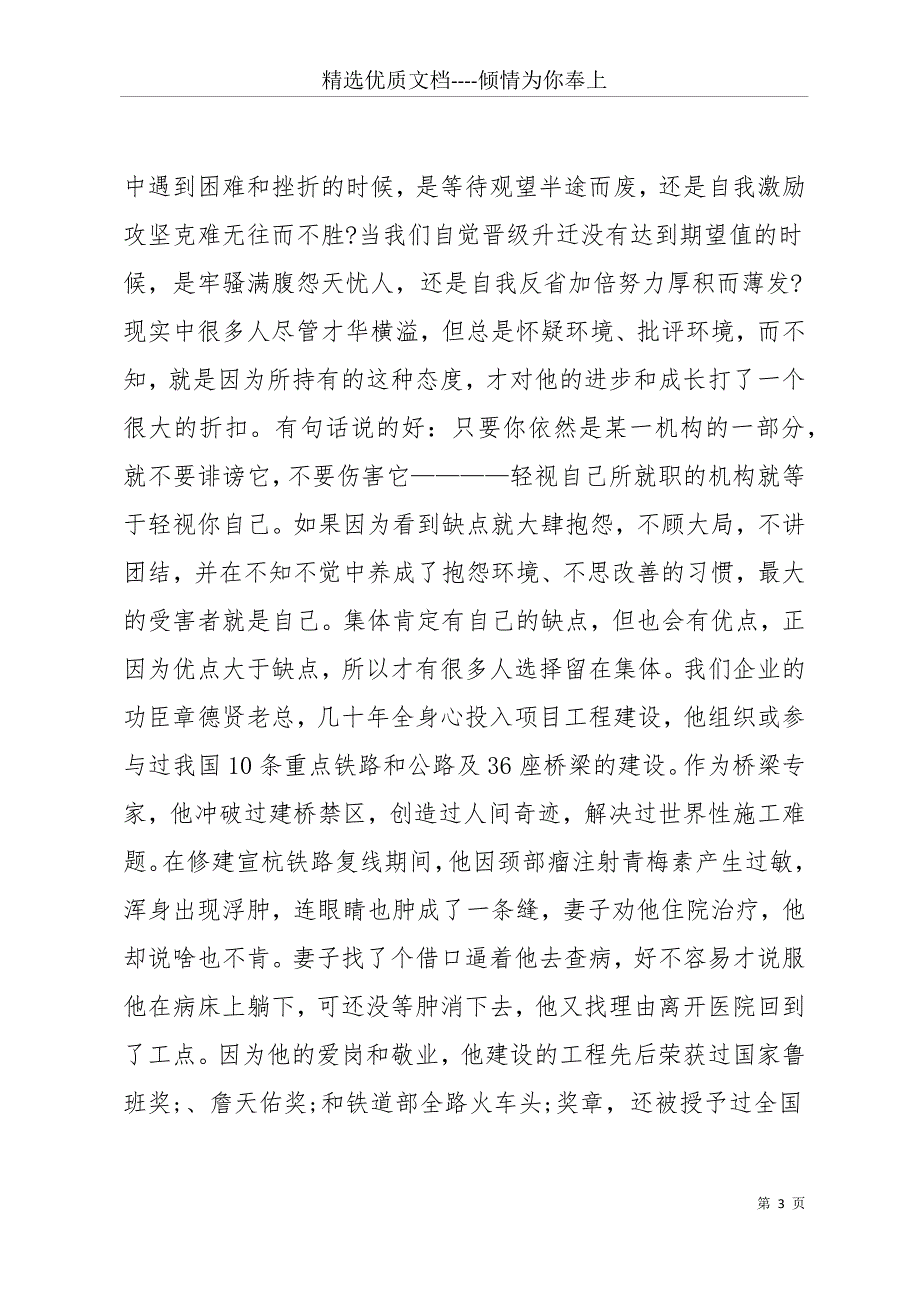 精选优质文档----倾情为你奉上
中遇到困难和挫折的时候，是等待观望半途而废，还是自我激励
攻坚克难无往而不胜?当我们自觉晋级升迁没有达到期望值的时
候，是牢骚满腹怨天忧人，还是自我反省加倍努力厚积而薄发?
现实中很多人尽管才华横溢，但总是怀疑环境、批评环境，而不
知，就是因为所持有的这种态度，才对他的进步和成长打了一个
很大的折扣。有句话说的好：只要你依然是某一机构的一部分，
就不要诽谤它，不要伤害它————轻视自己所就职的机构就等
于轻视你自己。如果因为看到缺点就大肆抱怨，不顾大局，不讲
团结，并在不知不觉中养成了抱怨环境、不思改善的习惯，最大
的受害者就是自己。集体肯定有自己的缺点，但也会有优点，正
因为优点大于缺点，所以才有很多人选择留在集体。我们企业的
功臣章德贤老总，几十年全身心投入项目工程建设，他组织或参
与过我国 10 条重点铁路和公路及 36 座桥梁的建设。作为桥梁专
家，他冲破过建桥禁区，创造过人间奇迹，解决过世界性施工难
题。在修建宣杭铁路复线期间，他因颈部瘤注射青梅素产生过敏，
浑身出现浮肿，连眼睛也肿成了一条缝，妻子劝他住院治疗，他
却说啥也不肯。妻子找了个借口逼着他去查病，好不容易才说服
他在病床上躺下，可还没等肿消下去，他又找理由离开医院回到
了工点。因为他的爱岗和敬业，他建设的工程先后荣获过国家鲁
班奖;、詹天佑奖;和铁道部全路火车头;奖章，还被授予过全国
第 3 页